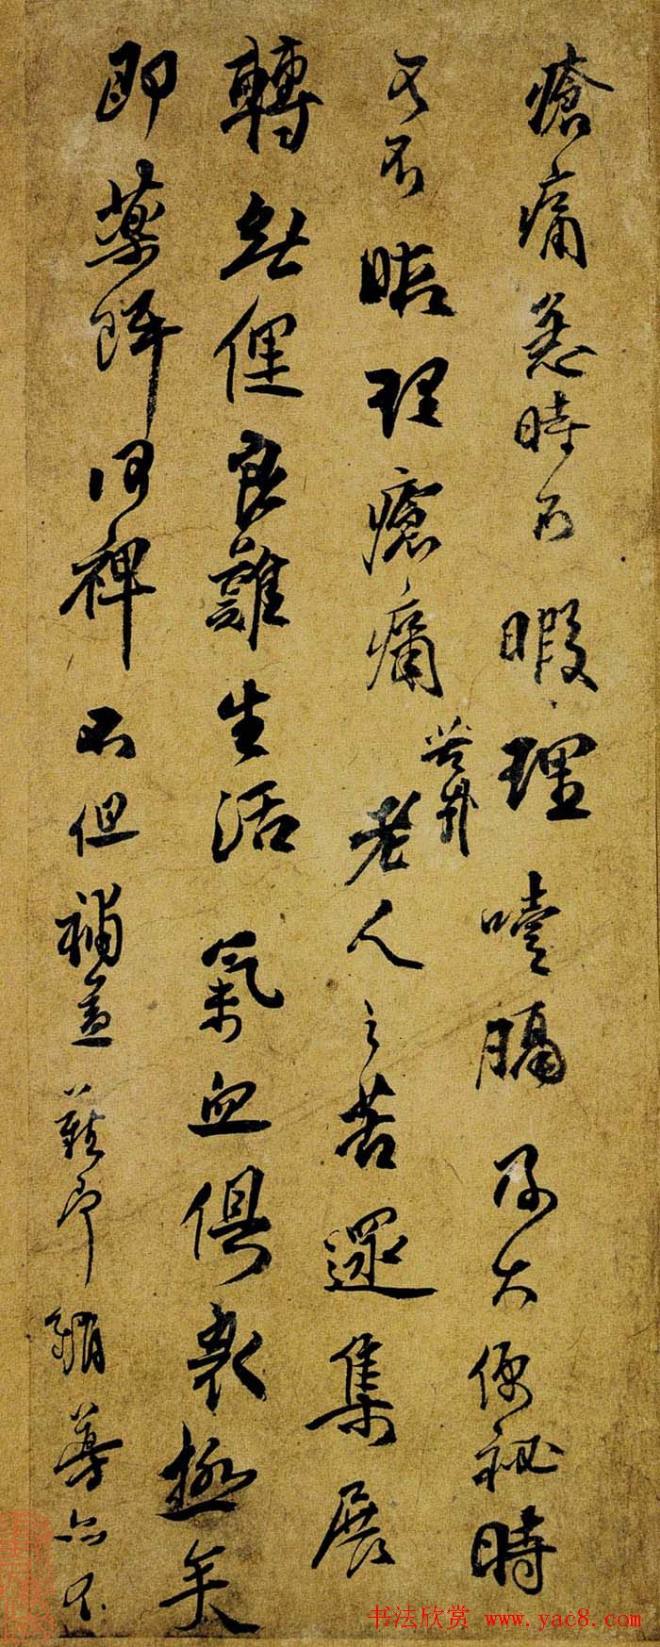 瘡痛急時不暇理噎膈及大便秘時
又不暇理瘡痛老人之苦還集展
轉無俚良難生活氣血俱衰極矣
即藥餌何裨不但補益難即銷導亦不
书法欣赏 www.yac8.com